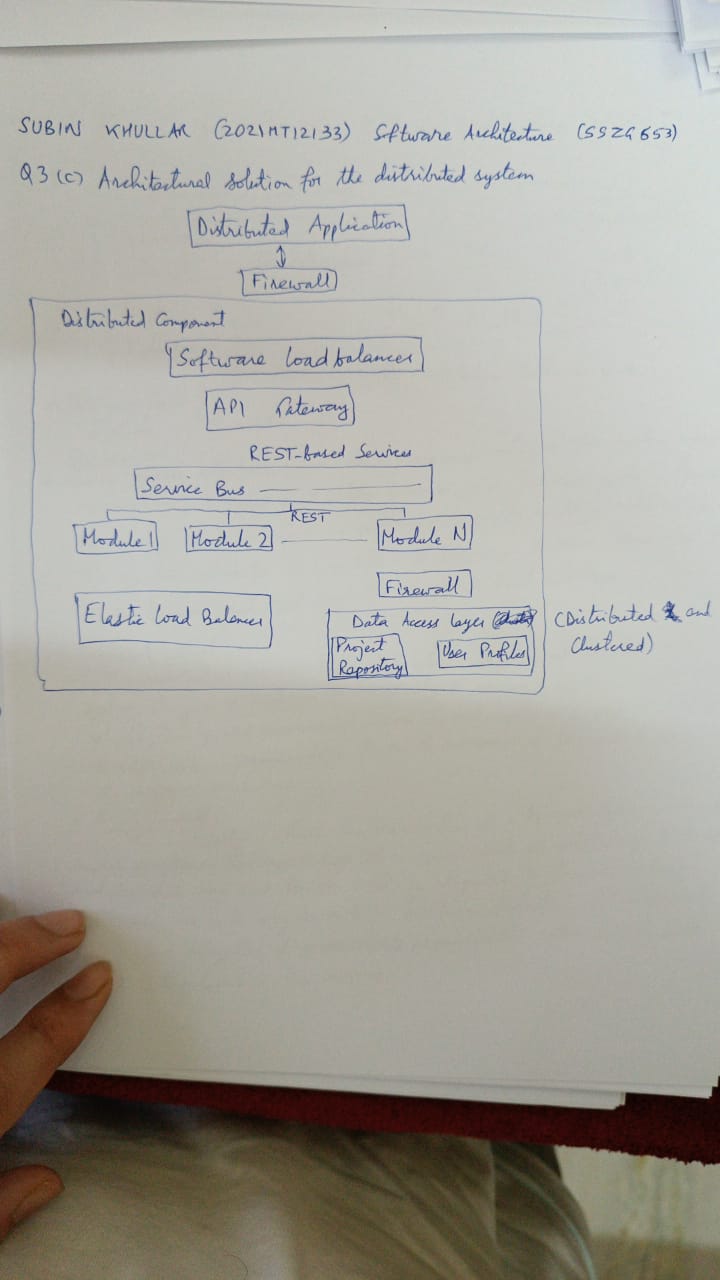 SUBIN KHULLAR (2021MT12133) Sftware Architecture (SSZG653)
Q3 (c) Architectural solution for the distributed system
Distributed Application
Firewall
Distributed Component
Software Load balancer
API Gateway
REST-based Services
Service Bus
REST
Module 1 Module 2 Module N
Firewall
Elastic Load Balancer
Data Access Layer (Distributed and
Clustered)
Project
Repository
User Profiles